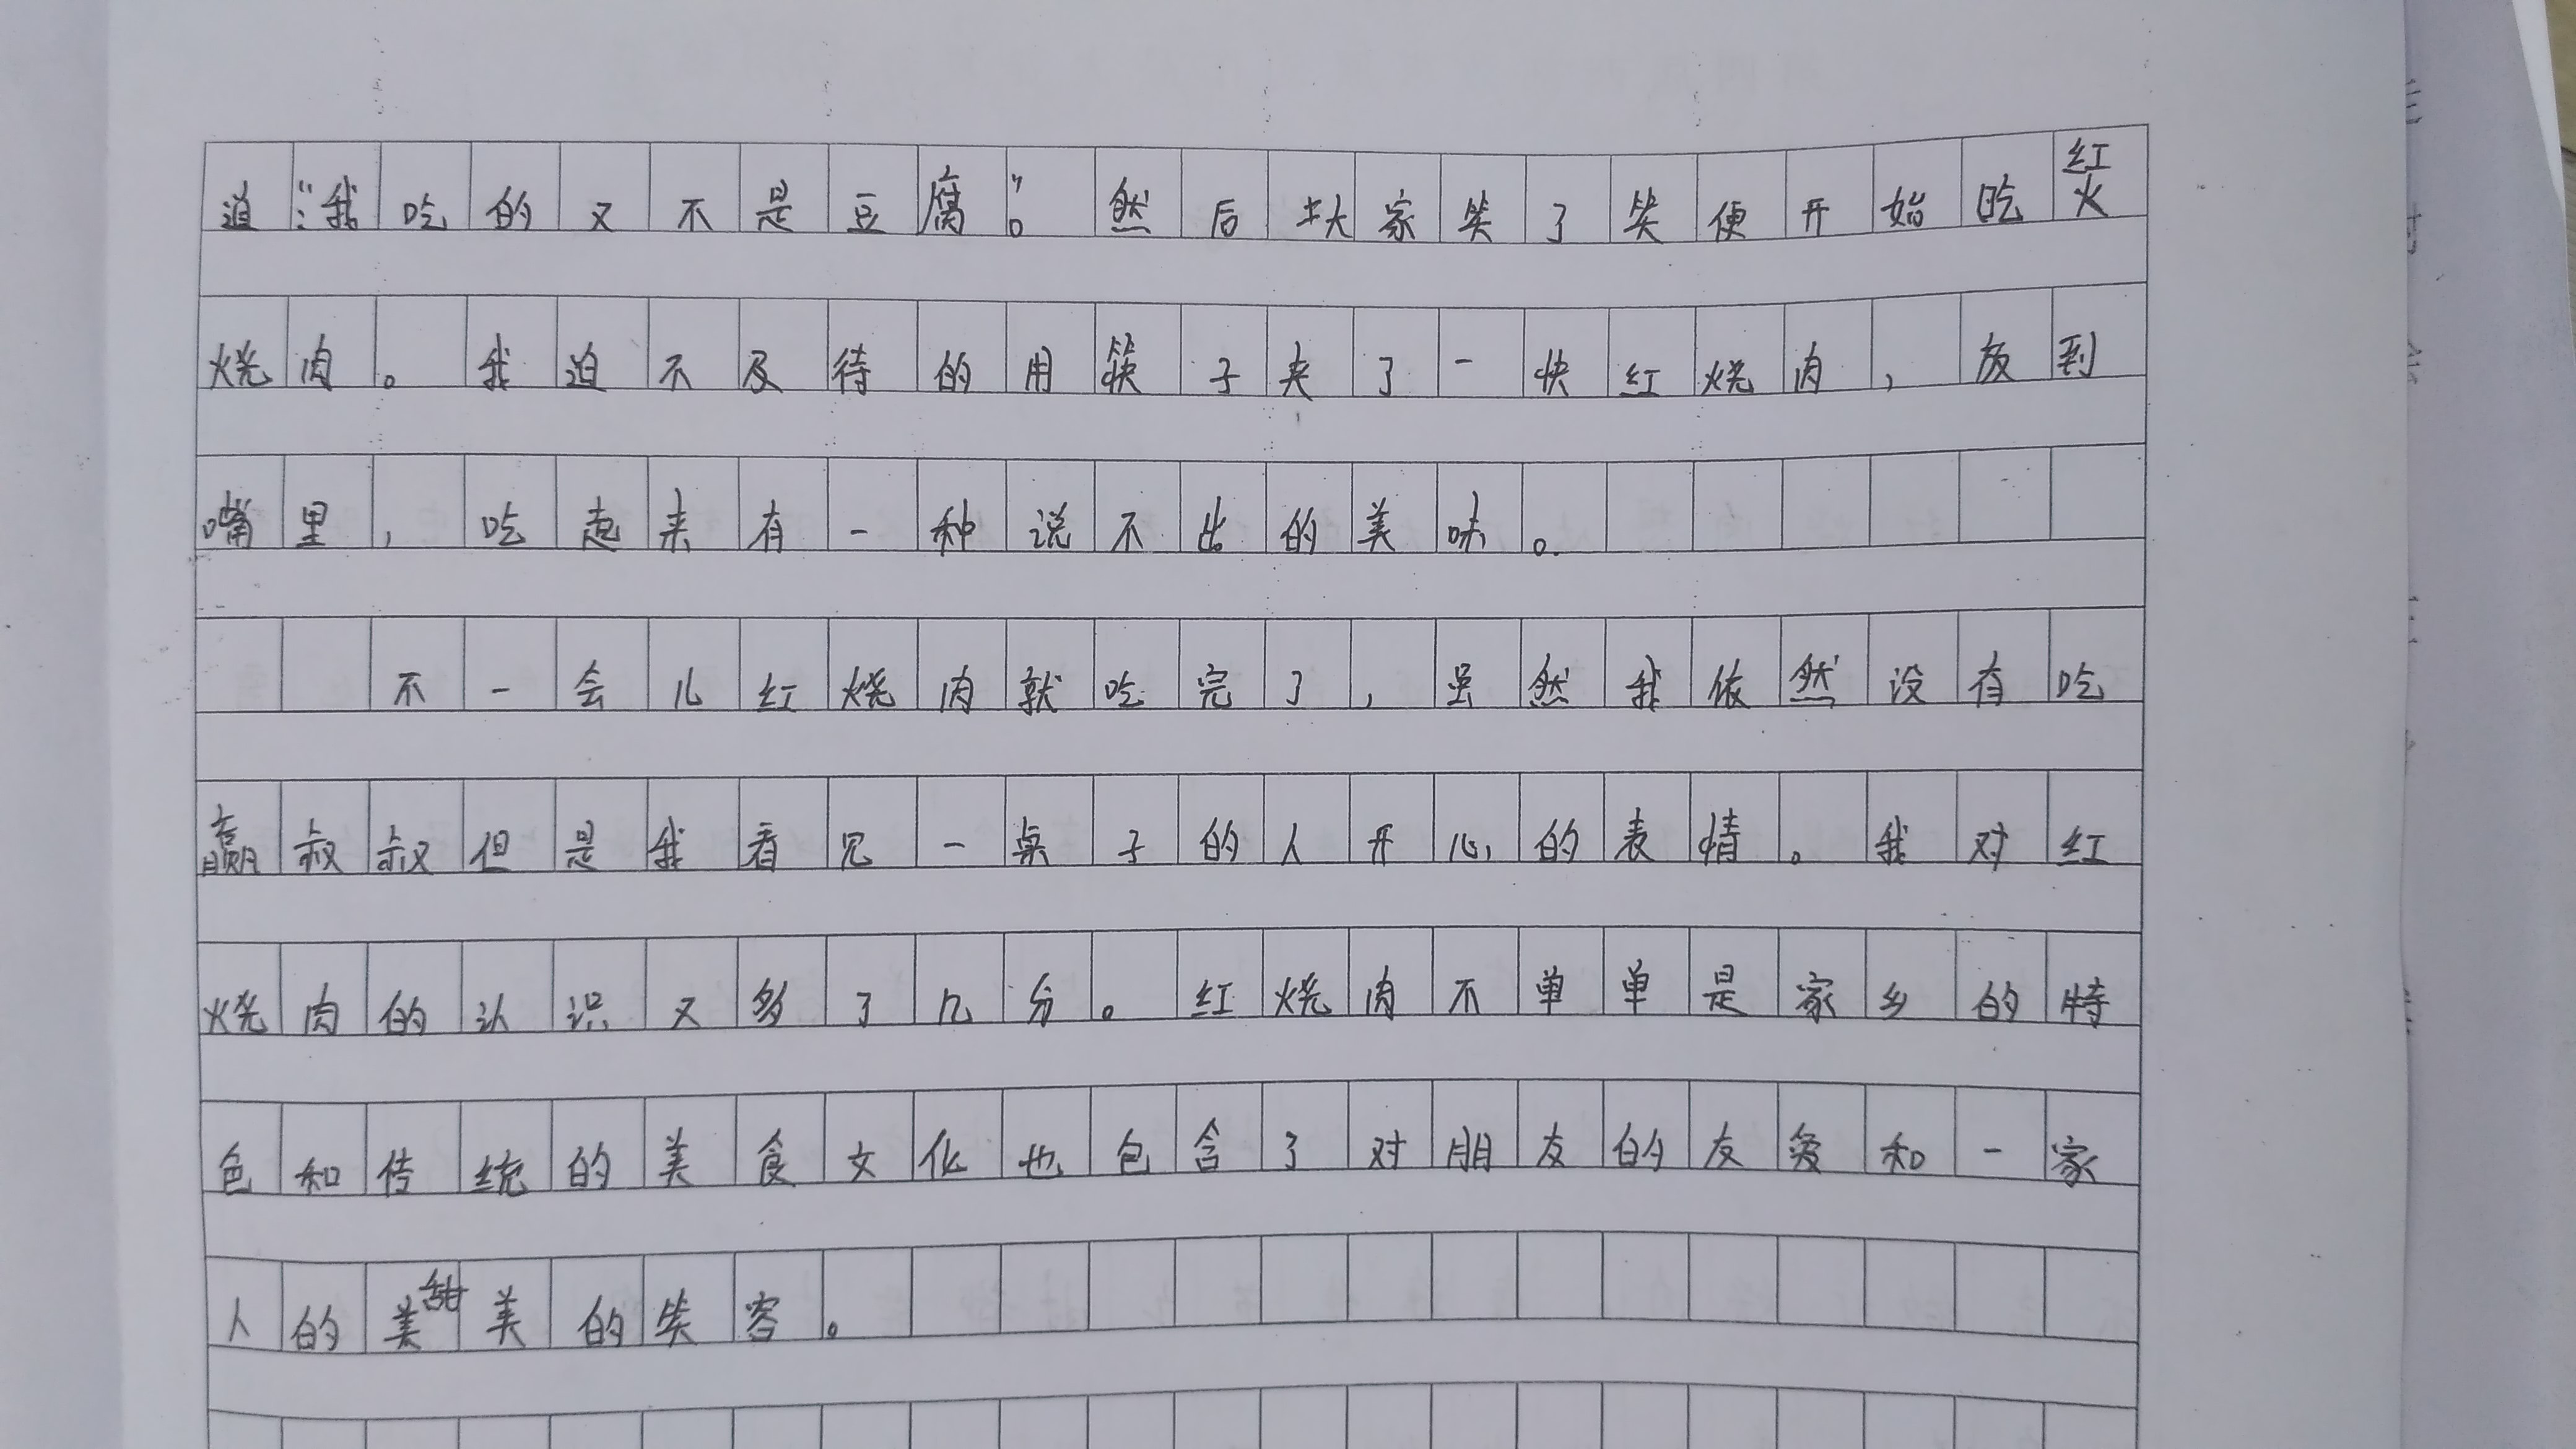 道:“我吃的又不是豆腐”。然后大家笑了笑便开始吃红
烧肉。我迫不及待的用筷子夹了一快红烧肉，放到
嘴里，吃起来有一种说不出的美味。
不一会儿红烧肉就吃完了，虽然我依然没有吃
赢叔叔但是我看见一桌子的人开心的表情。我对红
烧肉的认识又多了几分。红烧肉不单单是家乡的特
色和传统的美食文化也包含了对朋友的友爱和一家
人的美甜美的笑容。